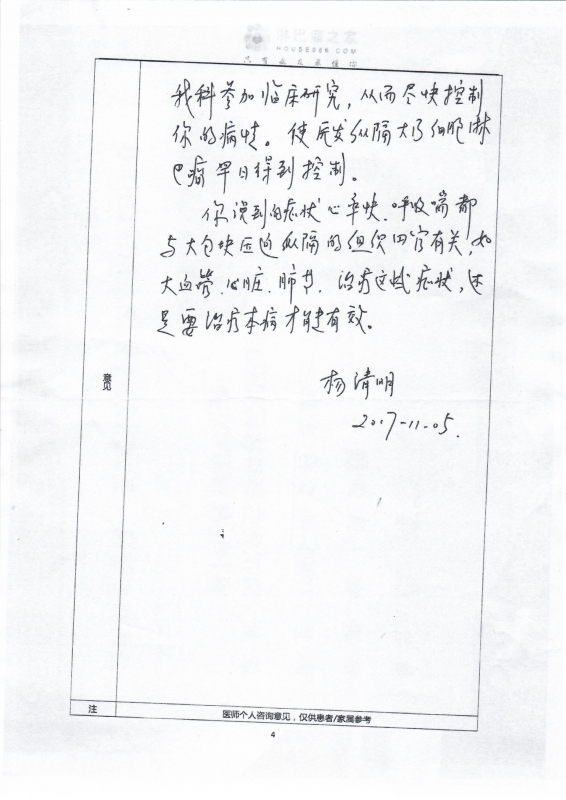 淋巴瘤之家
HOUSE086.COM
我科参加临床研究，从而尽快控制
你的病情。使原发纵隔大B细胞淋
巴瘤早日得到控制。
你说到的症状心率快、呼吸喘都
与大包块压迫纵隔的组织四官有关，如
大血管、心脏、肺等，治疗这些症状，还
是要治疗本病才能有效。
杨清明
2017-11-05.
意见
注
医师个人咨询意见，仅供患者/家属参考
4